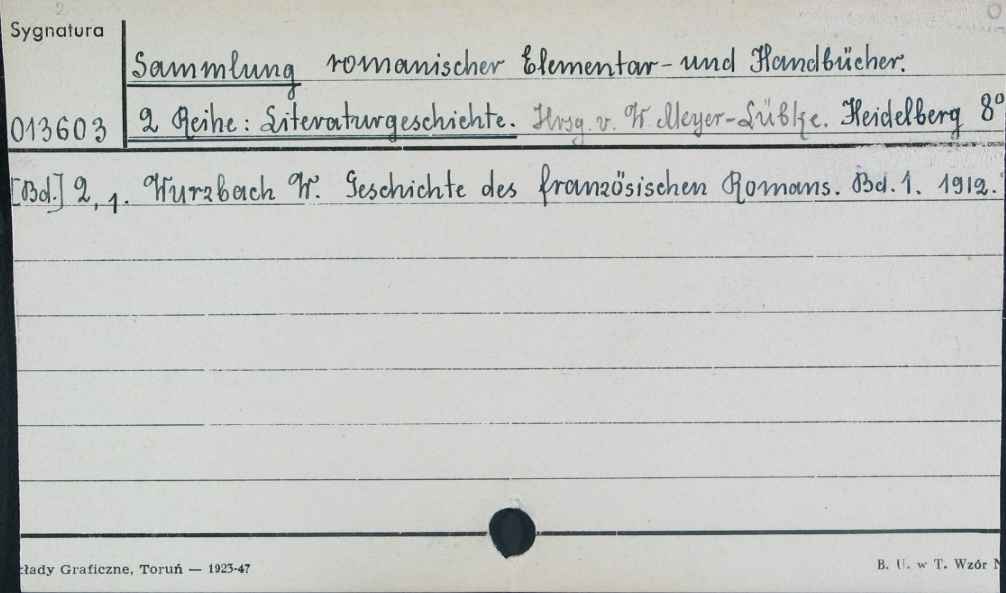 Sygnatura
Sammlung romanischer Elementar- und Handbücher.
013603
2 Reihe: Literaturgeschichte. Hrsg. v. W Meyer-Lübke. Heidelberg 8°
[Bd.] 2,1. Wurzbach W. Geschichte des französischen Romans. Bd. 1. 1912.
kłady Graficzne, Toruń — 1923-47
B. U. w T. Wzór N